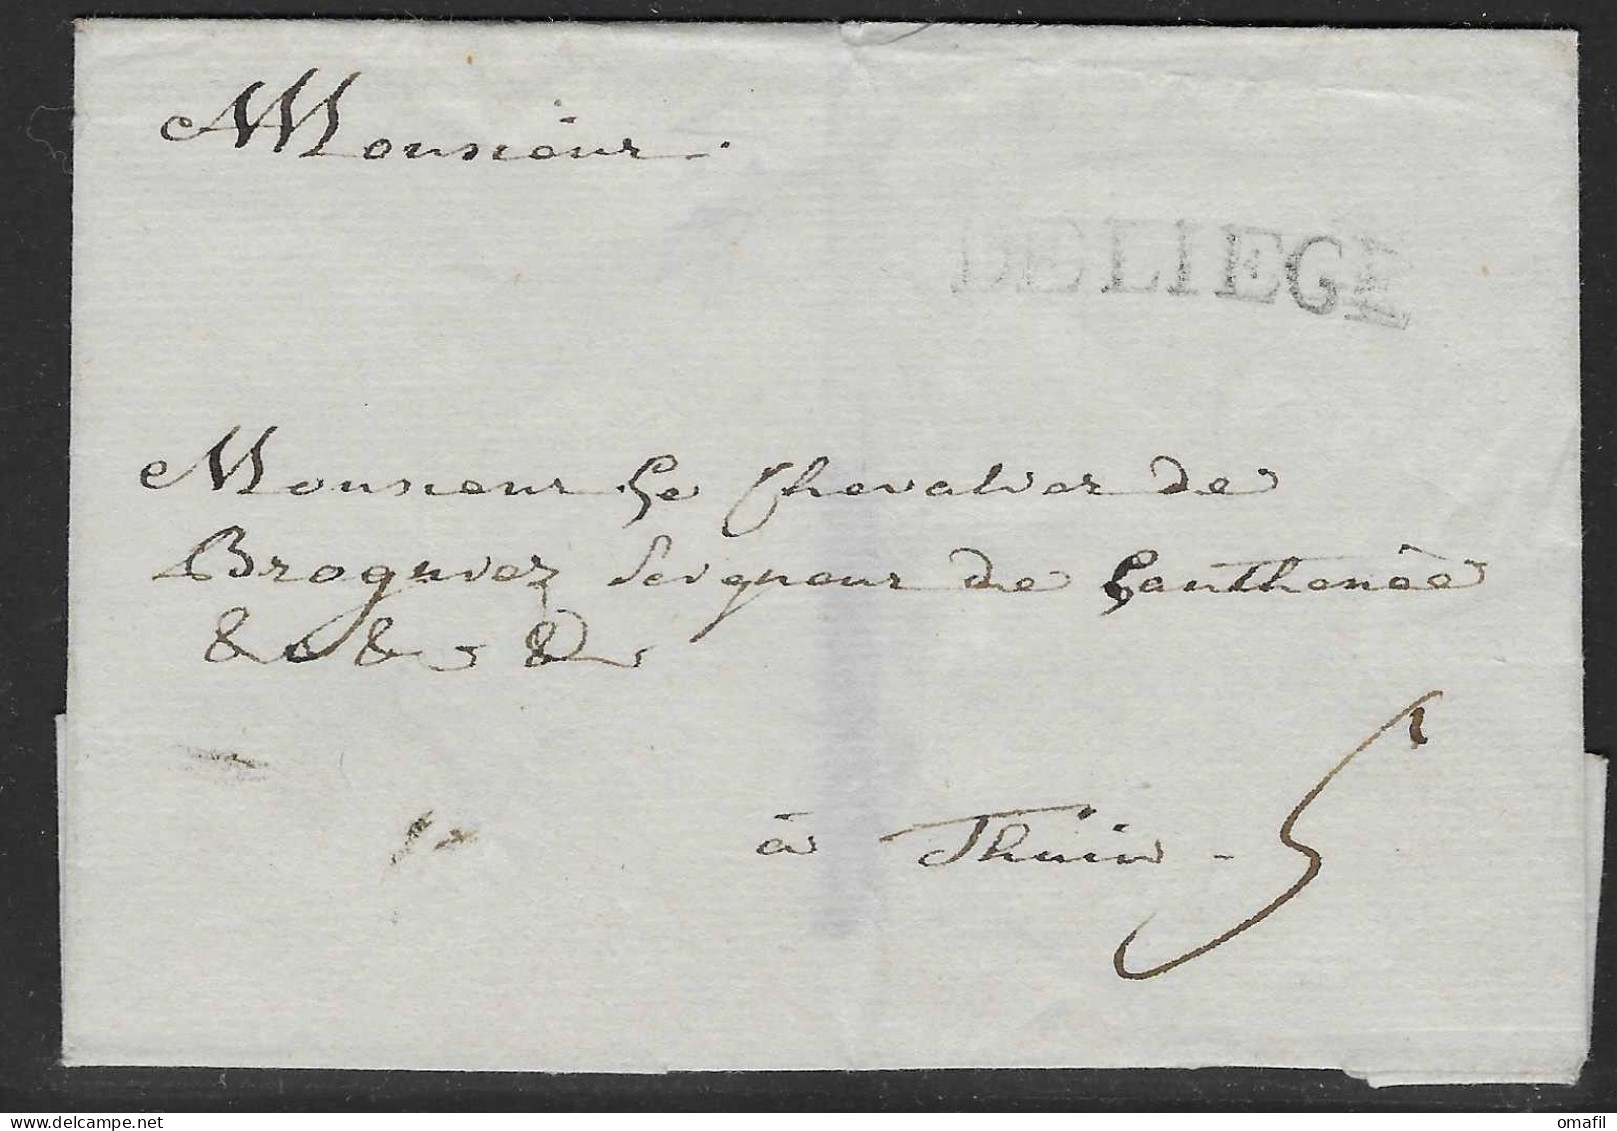 Monsieur
DE LIEGE
Monsieur Le Chevalier de
Brogniez Seigneur de Lanthenèe
& & &
à Thuin - 5
omafil